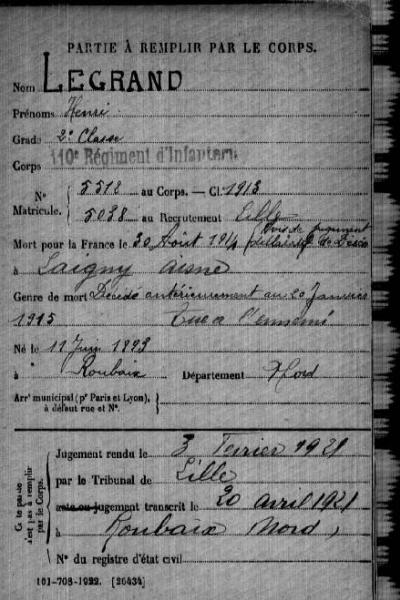 PARTIE À REMPLIR PAR LE CORPS.
Nom LEGRAND
Prénoms Henri
Grade 2e Classe
Corps 110e Régiment d'Infanterie
No Matricule. { 5518 au Corps. — Cl. 1913
5038 au Recrutement Lille
Mort pour la France le 30 Août 1914
à Laigny Aisne
Genre de mort Décédé antérieurement au 20 Janvier
1915 Tué à l'ennemi
Né le 11 Juin 1893
à Roubaix Département Nord
Arrt municipal (pr Paris et Lyon),
à défaut rue et No.
Jugement rendu le 3 Février 1921
par le Tribunal de Lille
acte ou jugement transcrit le 20 avril 1921
à Roubaix Nord
No du registre d'état civil
Ce te partie n'est pas à remplir par le Corps.
101-708-1922. [26434]